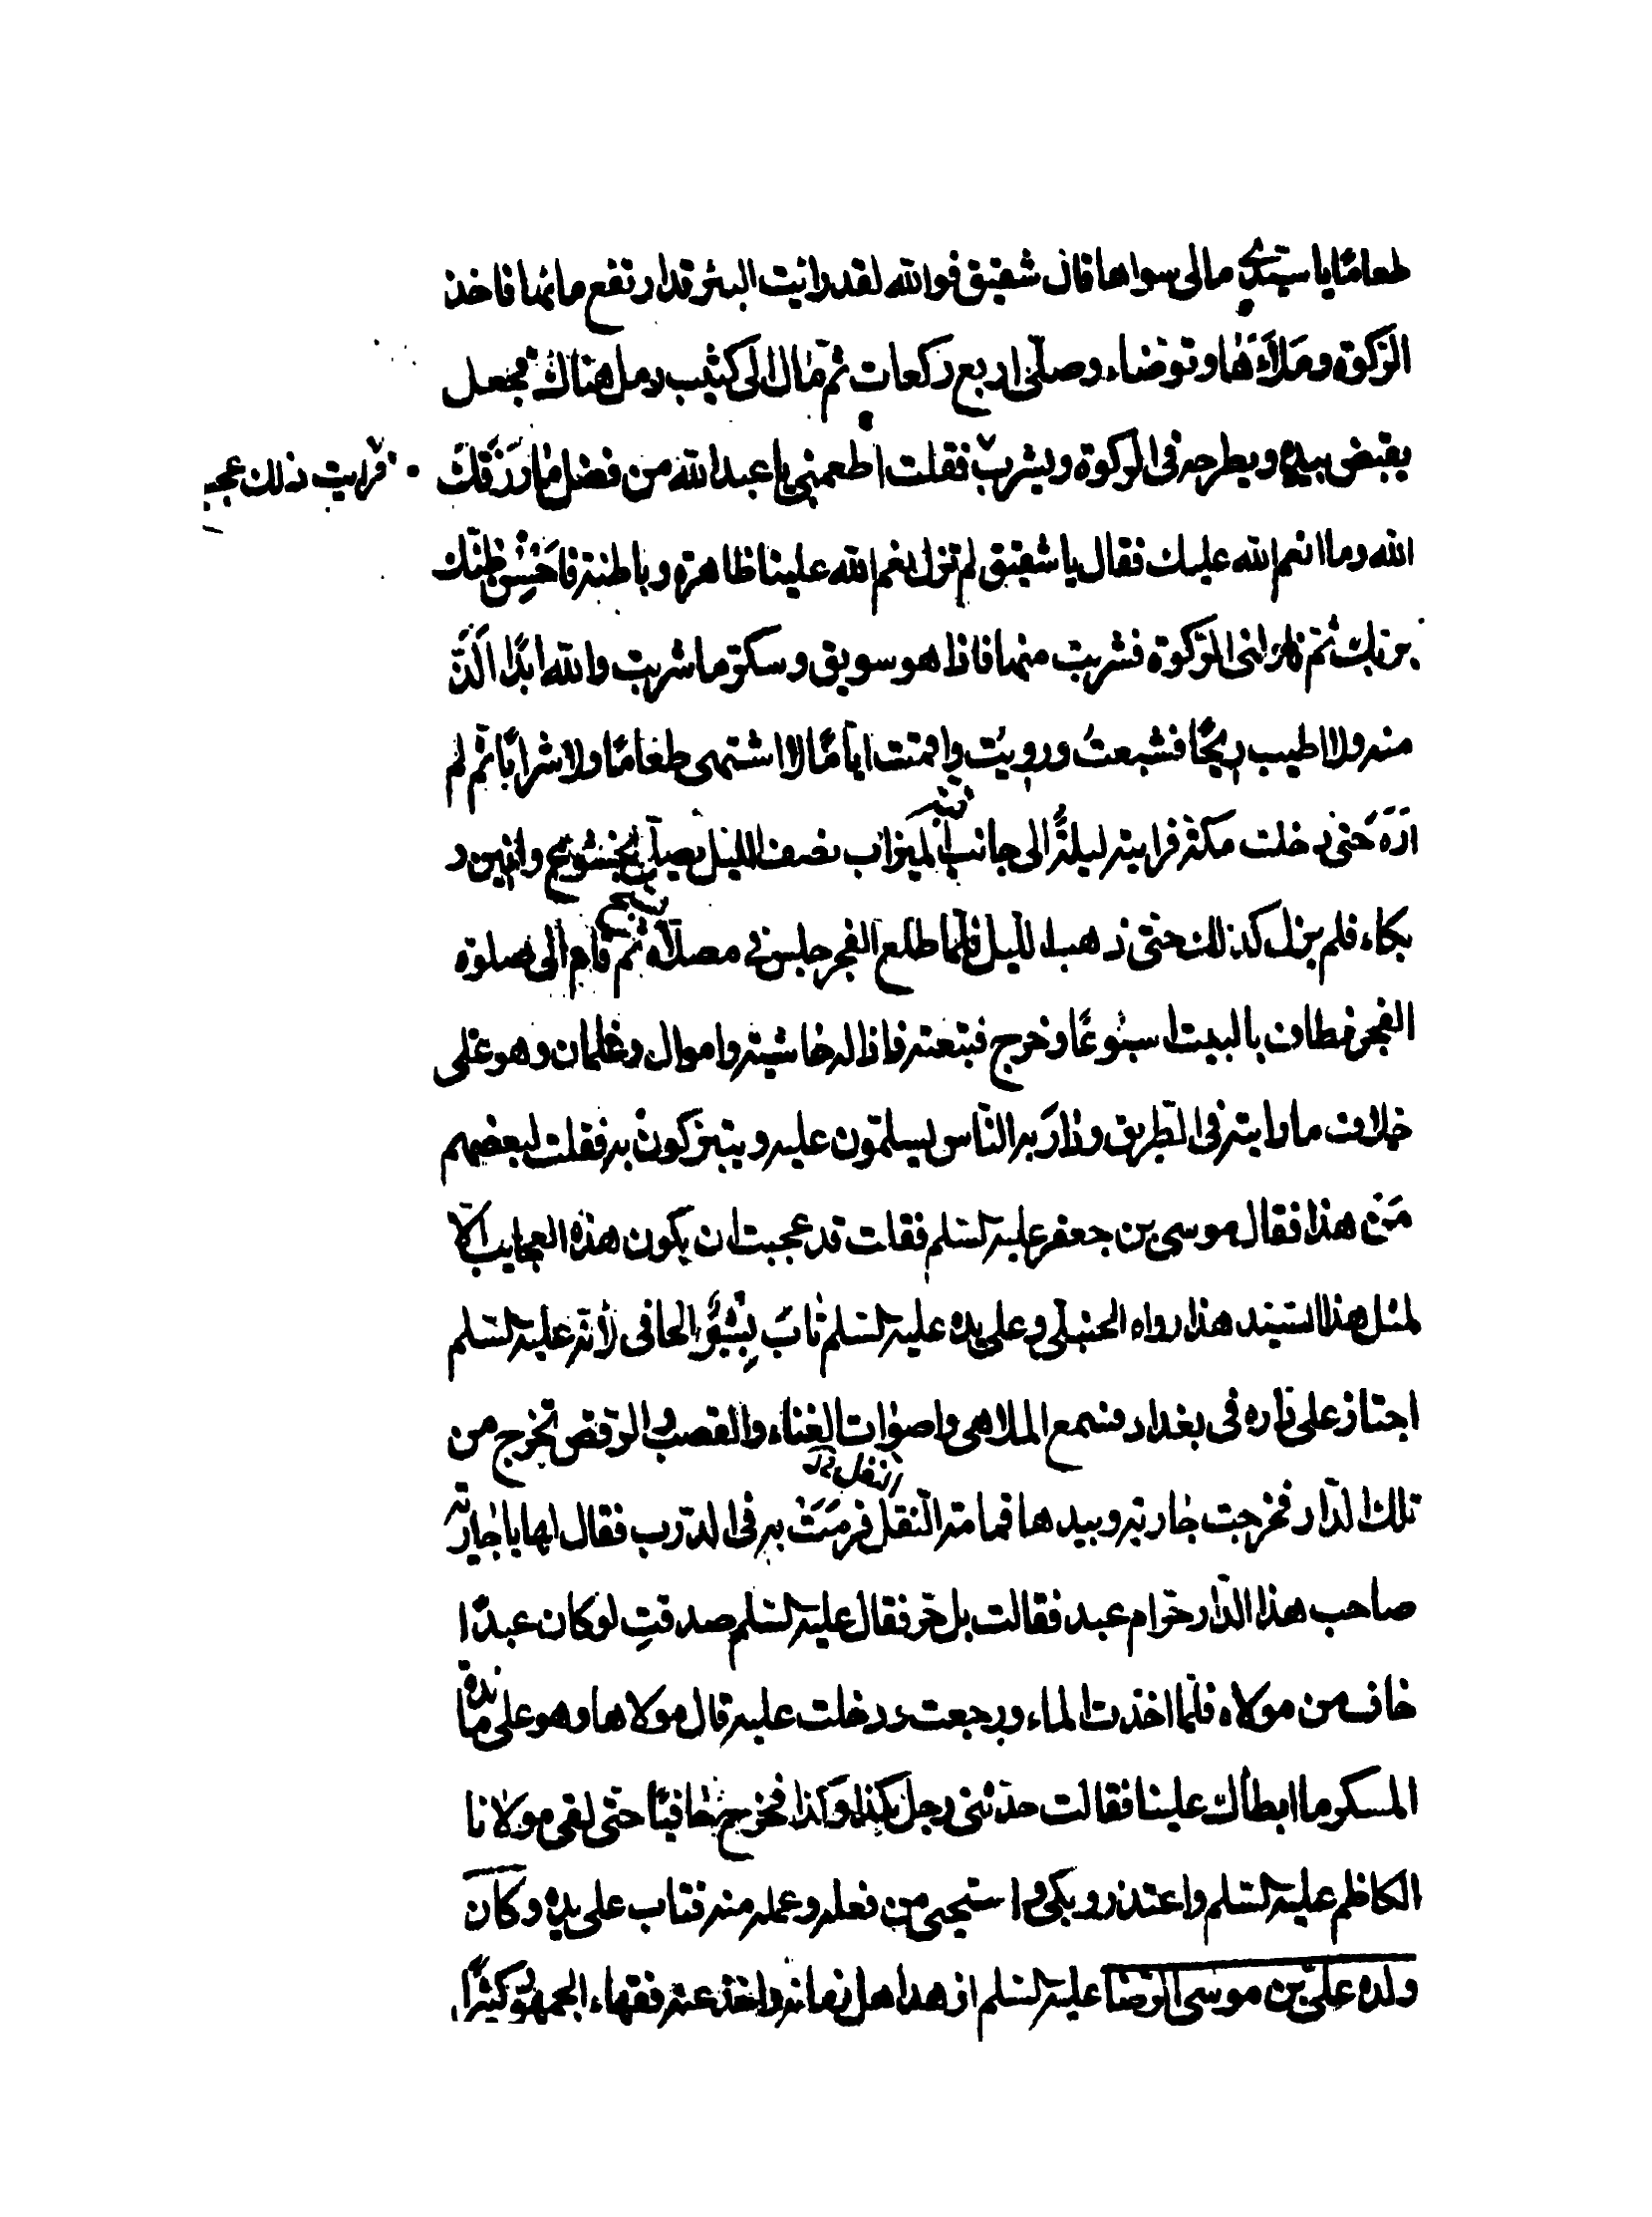 طعامًا يا سيّدي مالى سواها قال شقيق فوالله لقد رايت البئر قد ارتفع مائها فاخذ
الرّكوة وملأها وتوضاء وصلّى اربع ركعات ثمّ مال الى كثيب رمل هناك فجعل
يقبض بيده ويطرحه فى الركوة ويشرب فقلت اطعمنى يا عبد الله من فضل ما رزقك
فرايت ذلك عجبـ
الله وما انعم الله عليك فقال يا شقيق لم تزل نعم الله علينا ظاهرة وباطنة فاحسن ظنّك
بربّك ثمّ ناولنى الرّكوة فشربت منها فاذا هو سويق وسكّر ما شربت والله ابدًا الذّ
منه ولا اطيب ريحًا فشبعت ورويت واقمت ايّامًا لا اشتهى طعامًا ولا شرابًا ثمّ لم
اره حتى دخلت مكّة فرايته ليلةً الى جانب الميزاب نصف الليل يصلّى بخشوع وانين و
بكاء فلم يزل كذلك حتّى ذهب الليل فلمّا طلع الفجر جلس فى مصلّاه ثمّ قام الى صلوة
الفجر فطاف بالبيت اسبوعًا وخرج فتبعته فاذا له حاشية واموال وغلمان وهو على
خلاف ما رايته فى الطّريق ودار به النّاس يسلّمون عليه ويتبرّكون به فقلت لبعضهم
من هذا فقال موسى بن جعفر عليه السّلم فقلت قد عجبت ان يكون هذه العجايب الّا
لمثل هذا السّيّد هذا رواه الحنبلى وعلى يده عليه السّلم تاب بشر الحافى لأنّه عليه السّلم
اجتاز على داره فى بغداد فسمع الملاهى واصوات الغناء والقصب والرقص تخرج من
تلك الدّار فخرجت جارية وبيدها قمامة النّقل فرمت به فى الدّرب فقال لها يا جارية
صاحب هذا الدّار حرّ ام عبد فقالت بل حرّ فقال عليه السّلم صدقت لو كان عبدًا
خاف من مولاه فلمّا اخذت الماء ورجعت ودخلت عليه قال مولاها وهو على مائدة
المسكر ما ابطأك علينا فقالت حدّثنى رجل بكذا وكذا فخرج حافيًا حتى لقى مولانا
الكاظم عليه السّلم واعتذر وبكى واستحيى من فعله وعمله منه فتاب على يده وكان
ولده علىّ بن موسى الرّضا عليه السّلم ازهد اهل زمانه واخذ عنه فقهاء الجمهور كثيرًا